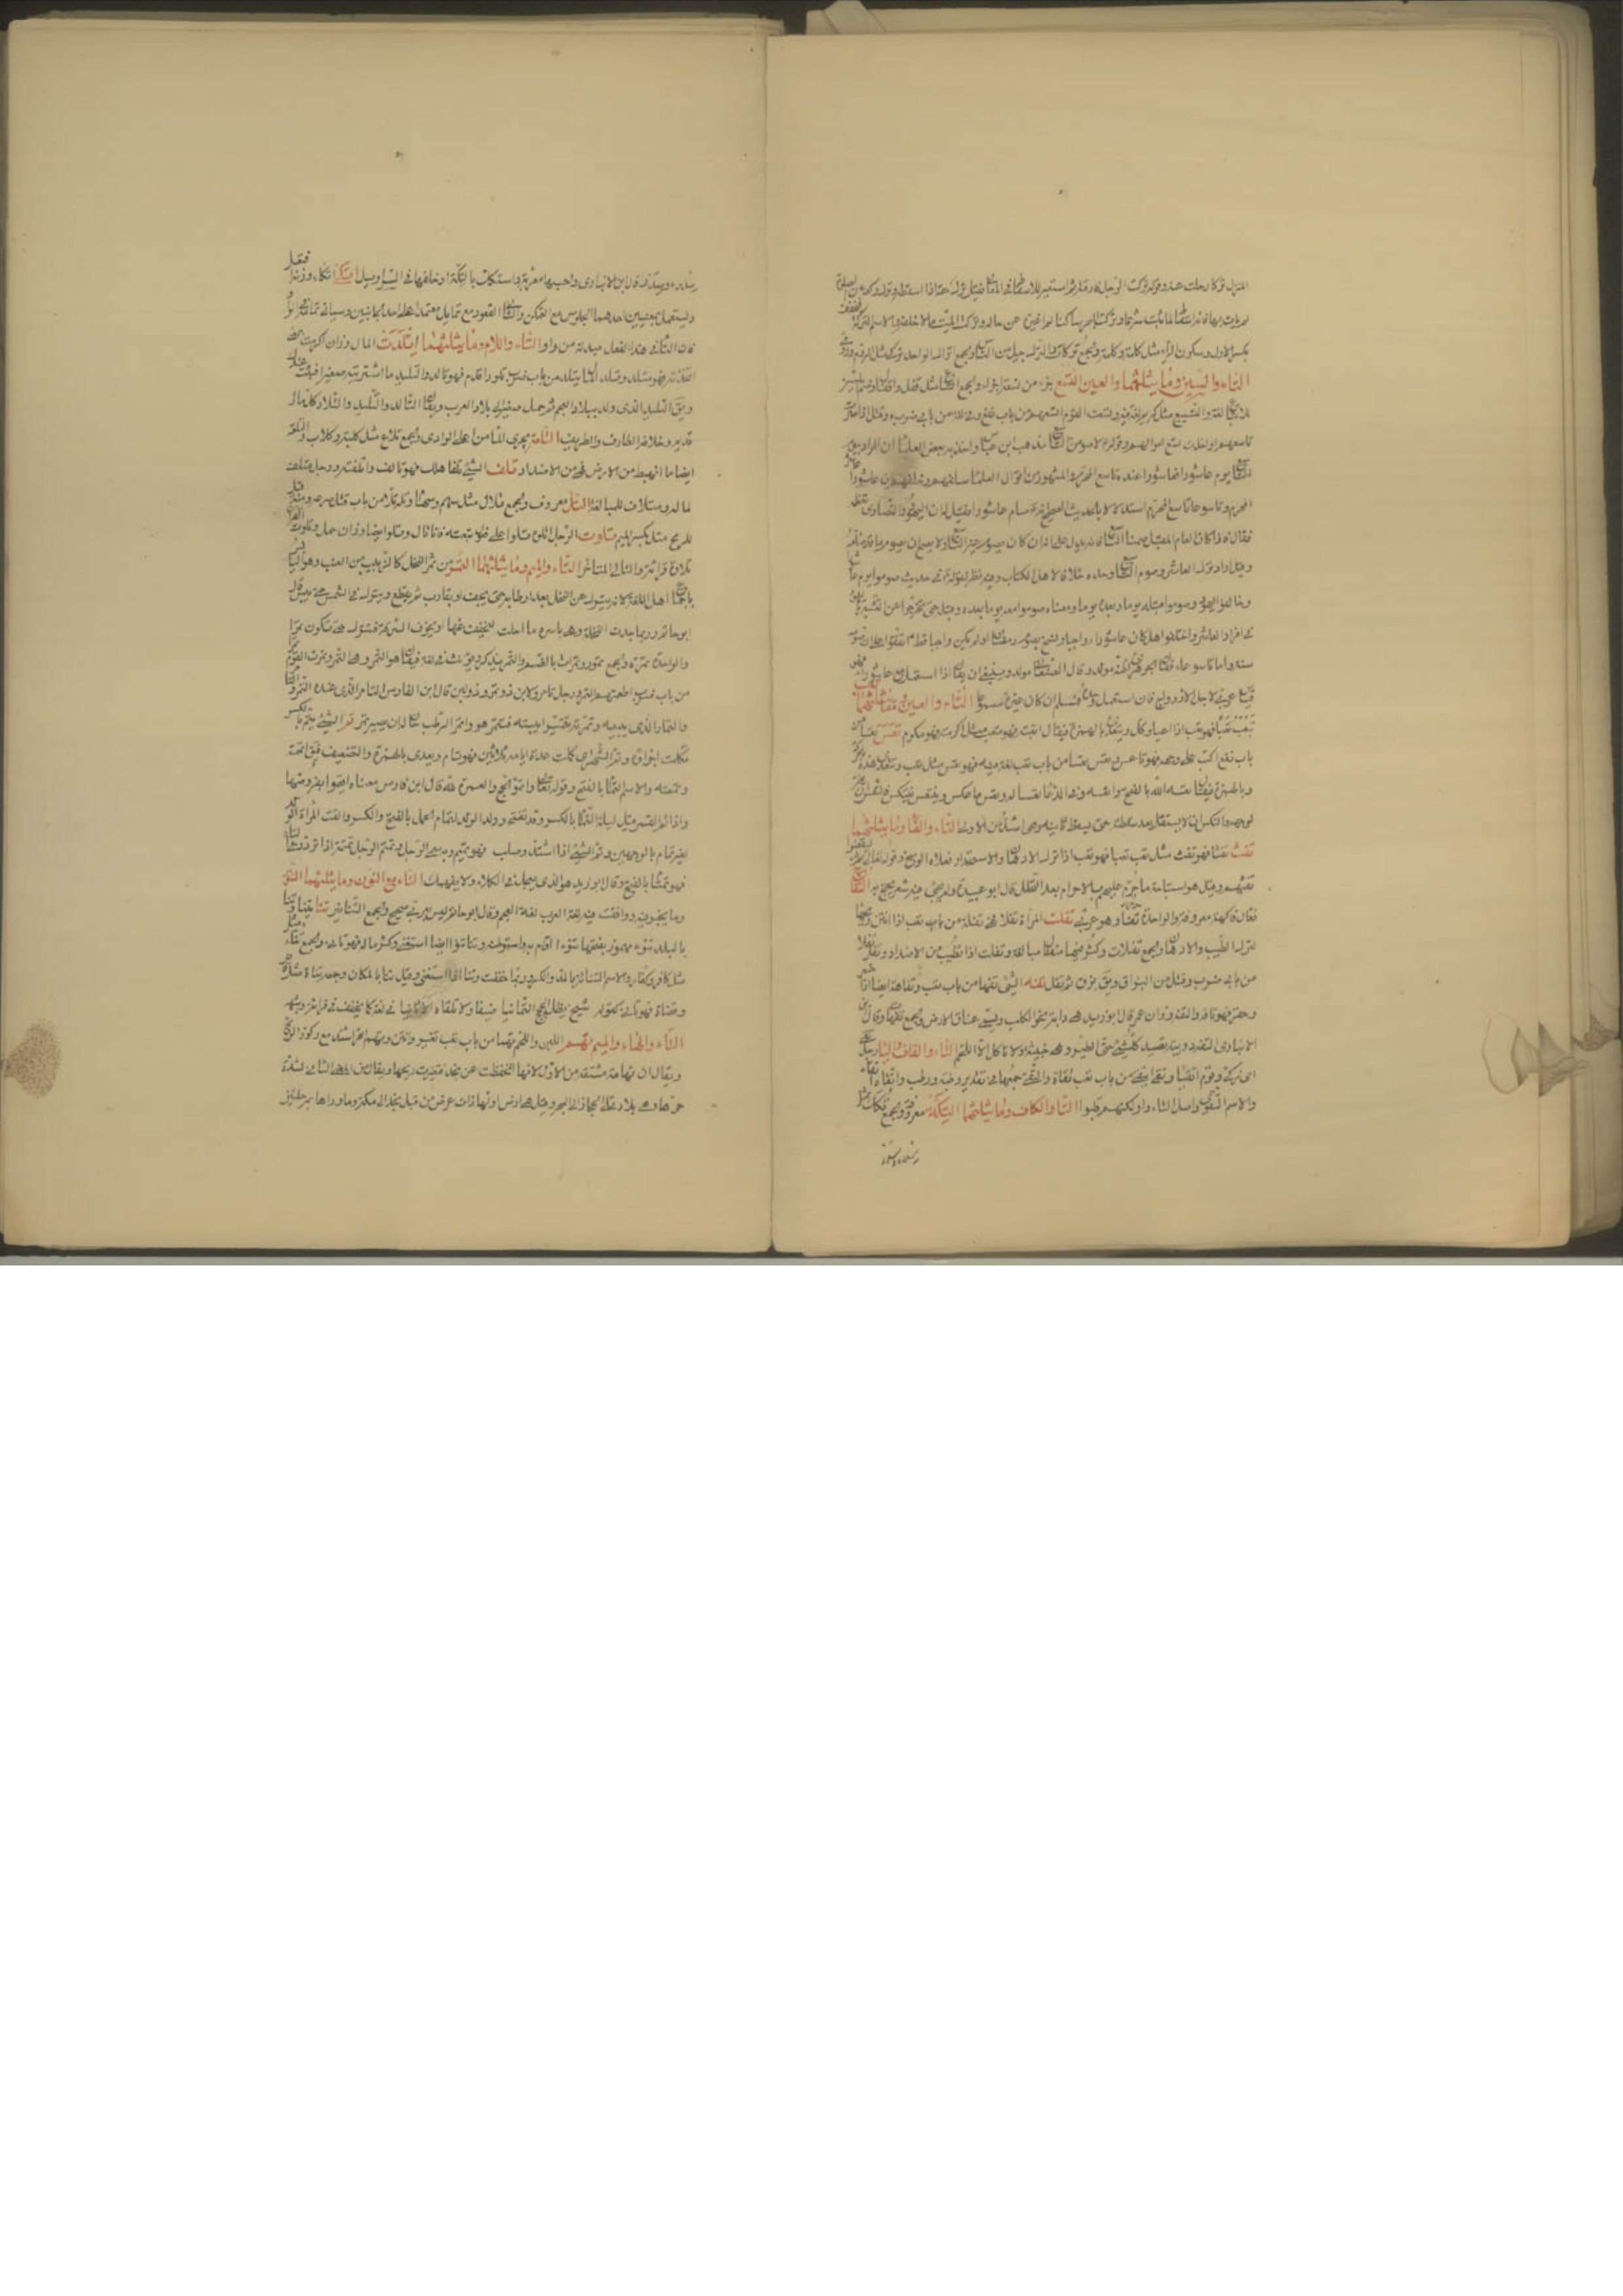 المنزل تركا رحلت عنه وتركت الرجل فارقته ثم استعير للاسقاط في المعاني فقيل ترك حقه اذا اسقطه وترك ركعة من الصلوة
لم يات بها فانه اسقاط لما ثبت شرعا وتركت البحر ساكنا لم اغيره عن حاله وترك الميت مالا خلفه والاسم التركة ويخفف
بكسر الاول وسكون الراء مثل كلمة وكلمة والجمع تركات والترك جيل من الناس والجمع اتراك الواحد تركي مثل روم ورومي
التاء والسين وما يثلثهما والعين التسع جزء من تسعة اجزاء والجمع اتساع مثل قفل واقفال وضم السين
للاتباع لغة والتسيع مثل كريم لغة فيه وتسعت القوم اتسعهم من باب نفع وفي لغة من بابي ضرب وقتل اذا صرت
تاسعهم او اخذت تسع اموالهم وقوله لاصومن التاسع مذهب ابن عباس واخذ به بعض العلماء ان المراد بـ
التاسع يوم عاشوراء فعاشوراء عنده تاسع المحرم والمشهور من اقوال العلماء سلفهم وخلفهم ان عاشوراء عاشر
المحرم وتاسوعاء تاسع المحرم استدلالا بالحديث الصحيح انه صام عاشوراء فقيل له ان اليهود والنصارى تعظمه
فقال فاذا كان العام المقبل صمنا التاسع فانه يدل على انه كان يصوم غير التاسع ولا يصح ان يصوم ما قد صامه
وقيل اراد ترك العاشر وصوم التاسع وحده خلافا لاهل الكتاب وفيه نظر لقوله في حديث صوموا يوم عاشوراء
وخالفوا اليهود صوموا قبله يوما وبعده يوما ومعناه صوموا معه يوما قبله او بعده حتى تخرجوا عن التشبه باليهود
في افراد العاشر واختلفوا هل كان عاشوراء واجبا ونسخ بصوم رمضان او لم يكن واجبا قط واتفقوا على ان صومه
سنة واما تاسوعاء فقال الجوهري اظنه مولدا وقال الصغاني مولد وينبغي ان يقال اذا استعمل مع عاشوراء فهو
قياس عربي لاجل الازدواج وان استعمل وحده فمسلم ان كان غير مسموع التاء والعين وما يثلثهما تعب
تعب تعبا فهو تعب اذا اعيا وكل ويتعدى بالهمزة فيقال اتعبته فهو متعب مثل اكرمته فهو مكرم تعس تعسا من
باب نفع اكب على وجهه فهو تاعس وتعس تعسا من باب تعب لغة فهو تعس مثل تعب ويتعدى هذه بالحركة
وبالهمزة فيقال تعسه الله بالفتح واتعسه وفي الدعاء تعسا له وتعس وانتكس فالتعس ان يخر
لوجهه والنكس ان لا يستقل بعد سقطته حتى يسقط ثانية وهي اشد من الاولى التاء والفاء وما يثلثهما
تفث تفثا فهو تفث مثل تعب تعبا فهو تعب اذا ترك الادهان والاستحداد فعلاه الوسخ وقوله تعالى ثم ليقضوا
تفثهم وقيل هو استباحة ما حرم عليهم بالاحرام بعد التحلل قال ابو عبيدة ولم يجئ فيه شعر يحتج به التفاح
فعال فاكهة معروفة الواحدة تفاحة وهو عربي تفلت المراة تفلا فهي تفلة من باب تعب اذا انتن ريحها
لترك الطيب والادهان والجمع تفلات وكثر فيها متفال مبالغة وتفلت اذا تطيبت من الاضداد وتفل تفلا
من بابي ضرب وقتل من البزاق يقال بزق ثم تفل تفه الشئ تفها من باب تعب وتفاهة ايضا اذا خس
وحقر فهو تافه والتفه وزان عمر قال ابو زيد هي دابة نحو الكلب وتسمى عناق الارض والجمع تفهات وقال ابن
الانباري التفه دويبة تصيد كل شيء حتى الطير وهي خبيثة ولا تاكل الا اللحم التاء والقاف والياء رجل تقي
اي زكي وقوم اتقياء وتقي يتقى من باب تعب تقاة والتقى جمعها في تقدير رطبة ورطب واتقاه اتقاء
والاسم التقوى واصل التاء واو لكنهم قلبوا التاء والكاف وما يثلثهما التكة معروفة والجمع تكك مثل
سدرة وسدر
سدرة وسدر قال ابن الانباري واحسبها معربة واستتكت بالتكة ادخلتها في السراويل اتكأ اتكاء وزنه افتعل
ويستعمل بمعنيين احدهما الجلوس مع التمكن والثاني القعود مع تمايل معتمدا على احد الجانبين وسياتي تمامه في الواو
فان التاء في هذا الفعل مبدلة من واو التاء واللام وما يثلثهما اتلدت المال وزان اكرمت
اتخذته فهو متلد وتلد المال يتلد من باب ضرب تلودا قدم فهو تالد والتليد ما اشتريته صغيرا فنبت عندك
ويقال التليد الذي ولد ببلاد العجم ثم حمل صغيرا الى بلاد العرب ويقال التالد والتليد والتلاد كل مال
قديم وخلافه الطارف والطريف التلعة مجرى الماء من اعلى الوادي والجمع تلاع مثل كلبة وكلاب والتلعة
ايضا ما انهبط من الارض فهي من الاضداد تلف الشئ تلفا هلك فهو تالف واتلفته ورجل متلف
لماله ومتلاف للمبالغة التل معروف والجمع تلال مثل سهم وسهام وتله تلا من باب قتل صرعه ومنه قيل
للرمح متل بكسر الميم تلوت الرجل اتلوه تلوا على فعول تبعته فانا تال وتلو ايضا وزان حمل وتلوت القرآن
تلاوة قرأته والتالي المتاخر التاء والميم وما يثلثهما التمر من ثمر النخل كالزبيب من العنب وهو اليابس
باجماع اهل اللغة لانه يترك على النخل بعد ارطابه حتى يجف او يقارب ثم يقطع ويترك في الشمس حتى ييبس قال
ابو حاتم وربما جدت النخلة وهي باسرة ما اخلت ليخفف عنها او لخوف السرقة فتترك حتى تكون تمرا
والواحدة تمرة والجمع تمور وتمران بالضم والتمر يذكر في لغة ويؤنث في لغة فيقال هو التمر وهي التمر وتمرت القوم تمرا
من باب ضرب اطعمتهم التمر ورجل تامر ولابن ذو تمر وذو لبن قال ابن الفارس التامر الذي عنده التمر
والتمار الذي يبيعه وتمرته تتميرا يبسته فتتمر هو واتمر الرطب حان له ان يصير تمرا تم الشئ يتم بالكسر
تكملت اجزاؤه وتم الشهر كملت عدة ايامه ثلاثين فهو تام ويعدى بالهمزة والتضعيف فيقال اتمه
وتممته والاسم التمام بالفتح وقوله تعالى واتموا الحج والعمرة لله قال ابن فارس معناه ائتوا بفروضهما
واذا تم القمر يقال ليلة التمام بالكسر وقد تفتح وولد الولد لتمام الحمل بالفتح والكسر والقت المراة الولد
لغير تمام بالوجهين وتم الشئ اذا اشتد وصلب فهو تميم وبه سمي الرجل وتمتم الرجل تمتمة اذا تردد في التاء
فهو تمتام بالفتح وقال ابو زيد هو الذي يعجل في الكلام ولا يفهمك التاء مع النون وما يثلثهما التنور
وما يخبز فيه ووافقت فيه لغة العرب لغة العجم وقال ابو حاتم ليس بعربي صحيح والجمع التنانير تنأ يتنا وتنأ
بالبلد تنوء مهموز بفتحهما تنوءا اقام به واستوطنه وتنأ تنوءا ايضا استغنى وكثر ماله فهو تانئ والجمع تناء مثل
مثل كافر وكفار والاسم التناءة بالمد والكسر وربما خفف وتنا المال استغنى وقيل تنا بالمكان وجمعه تناة مثل قاض
وقضاة فهو تان كقوله شيخ يظل الحجج الثمانيا ضيفا ولا تلقاه الا تانيا في لغة كما يخفف في قرائة وشبهه
التاء والهاء والميم تهم اللبن واللحم تهما من باب تعب تغير وانتن وتهم الحر اشتد مع ركود الريح
ويقال ان تهامة مشتقة من الاول لانها انخفضت عن نجد فتغيرت ريحها ويقال من المعنى الثاني لشدة
حرها وهي بلاد تلي الحجاز الى البحر وقيل هي ارض اولها ذات عرق من قبل نجد الى مكة وما وراءها بمرحلتين